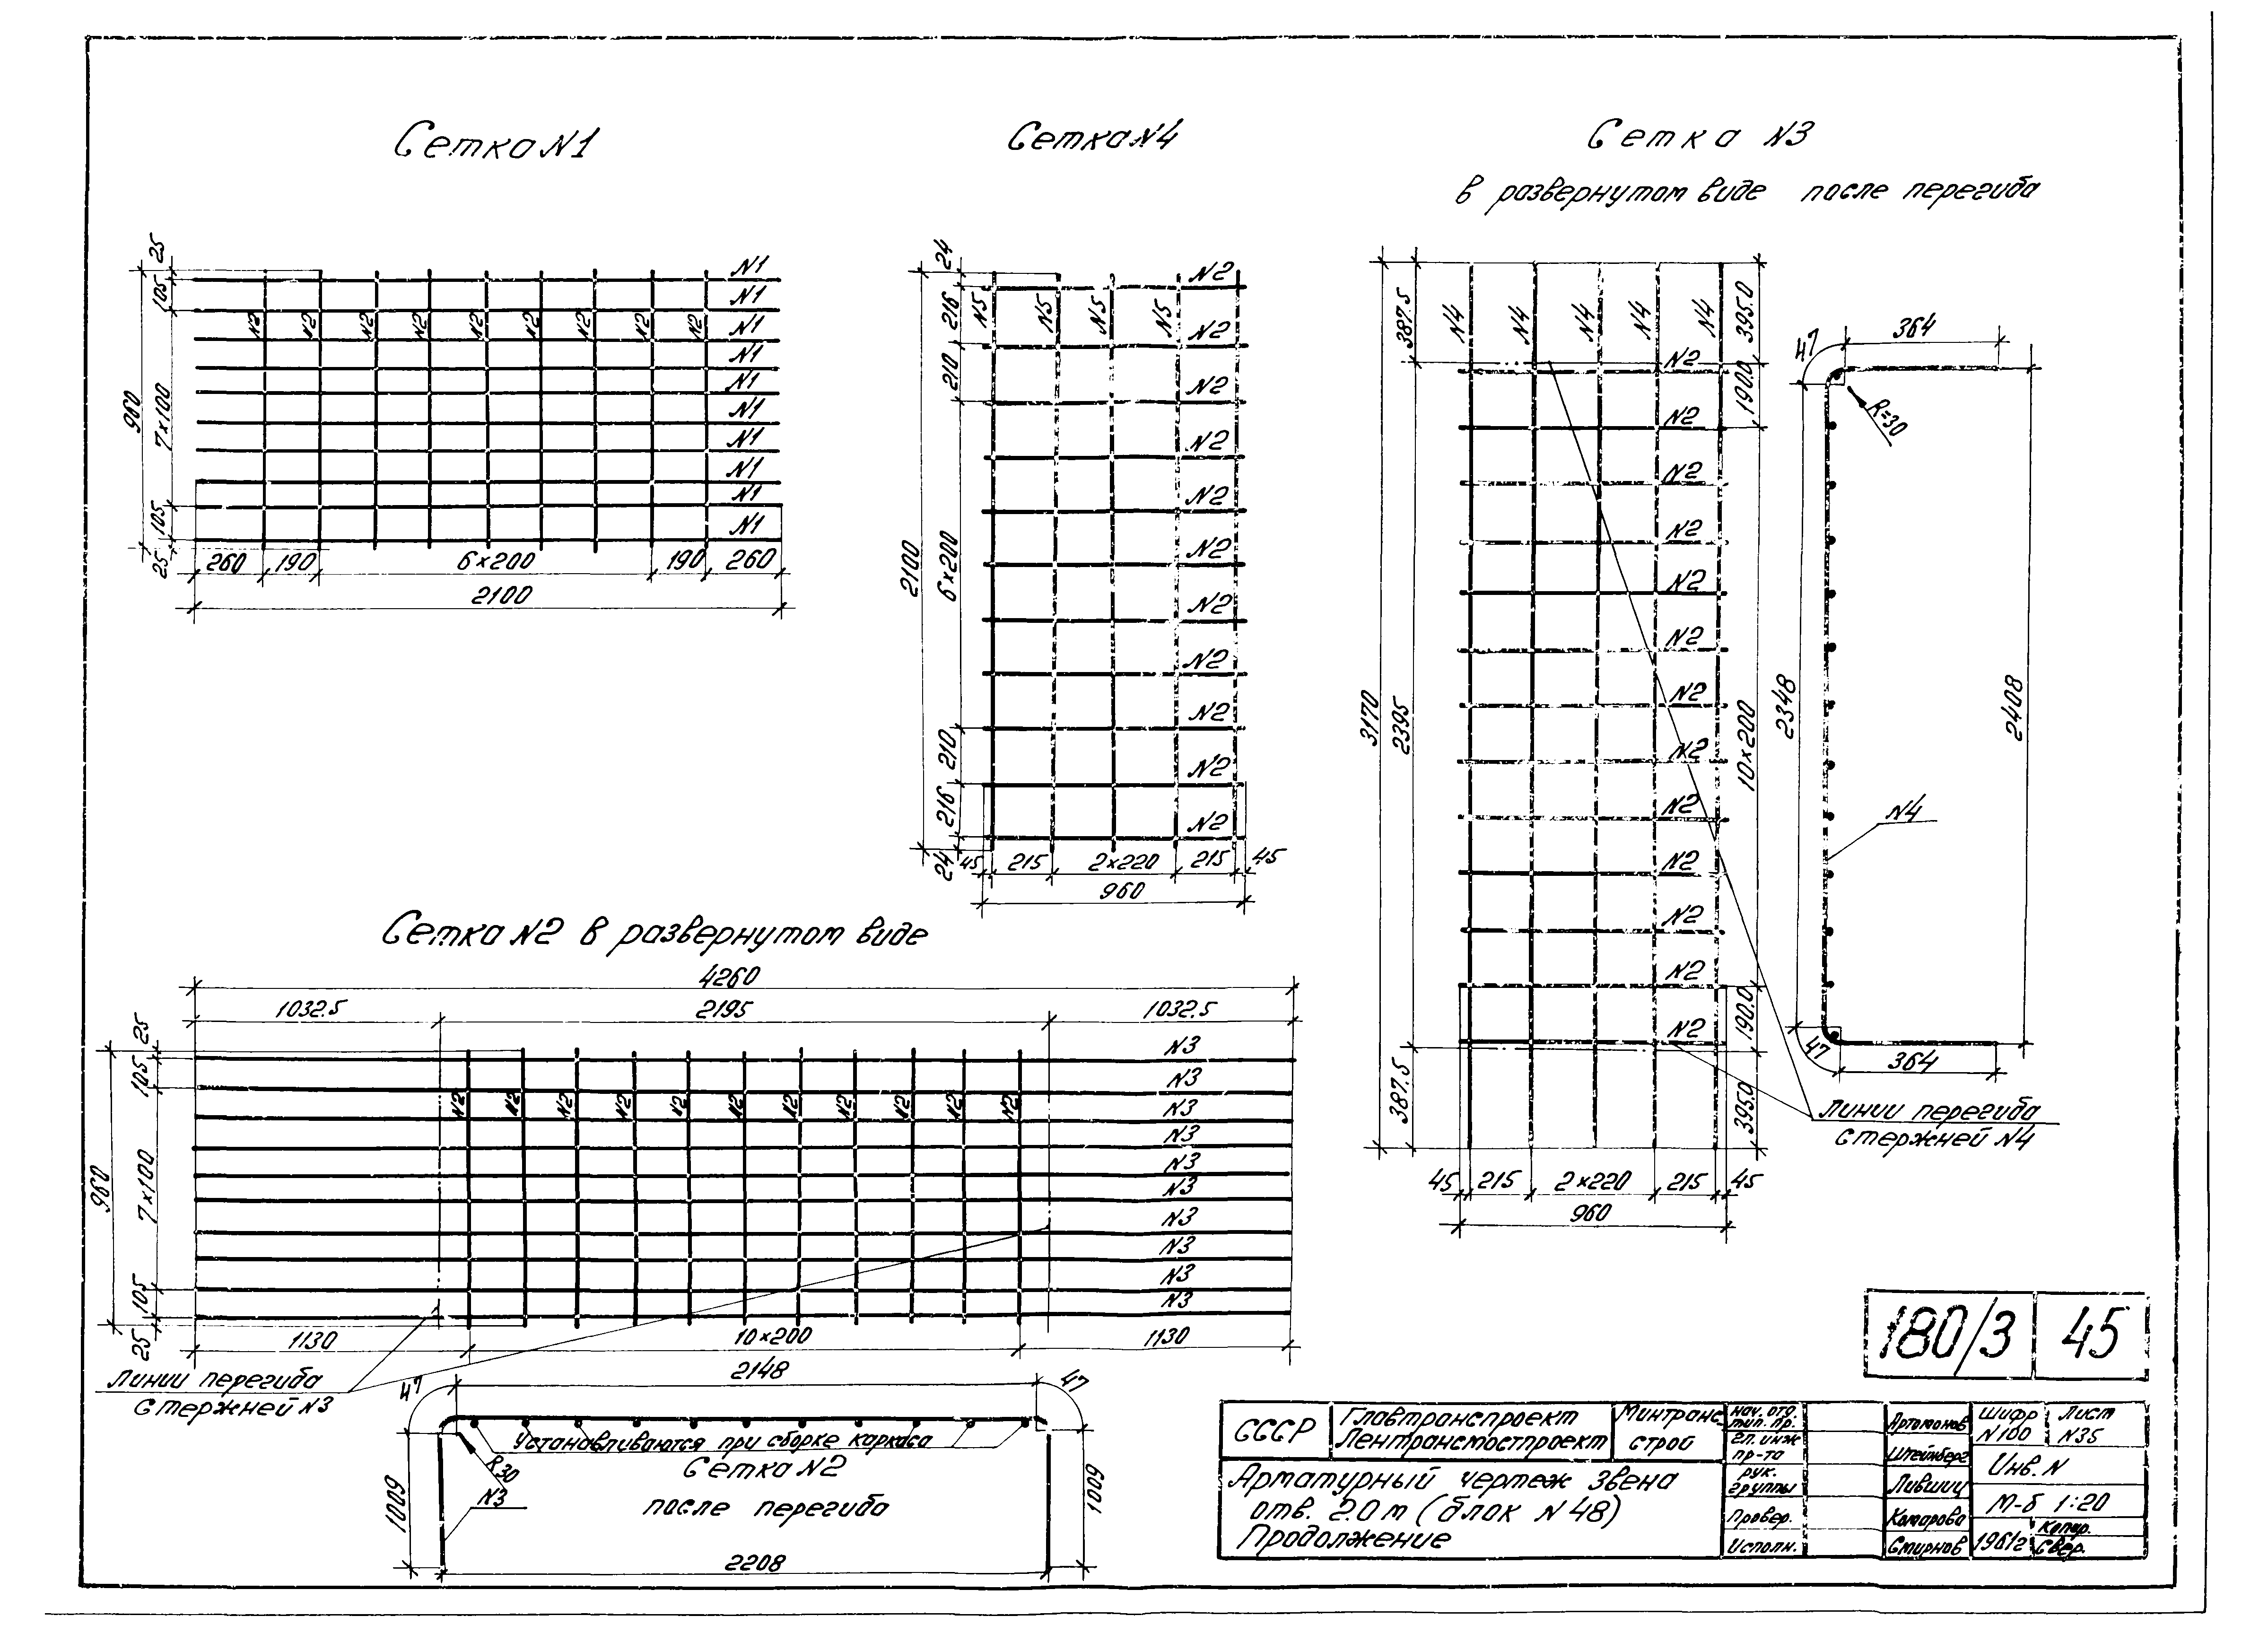 Сетка N1
25
105
7×100
960
105
25
N1
N1
N1
N1
N1
N1
N1
N1
N1
N1
N2 N2 N2 N2 N2 N2 N2 N2 N2
260 190 6×200 190 260
2100
Сетка N4
24
216
210
6×200
2100
210
216
24
N5 N5 N5 N5
N2
N2
N2
N2
N2
N2
N2
N2
N2
N2
N2
45 215 2×220 215 45
960
Сетка N3
в развернутом виде после перегиба
387.5
2395
3170
387.5
N4 N4 N4 N4 N4
N2
N2
N2
N2
N2
N2
N2
N2
N2
N2
N2
N2
N2
395.0
190.0
10×200
190.0
395.0
45 215 2×220 215 45
960
47
364
R=30
2348
2408
N4
47
364
Линии перегиба
стержней N4
Сетка N2 в развернутом виде
4260
1032.5 2195 1032.5
25
105
7×100
960
105
25
N2 N2 N2 N2 N2 N2 N2 N2 N2 N2 N2
N3
N3
N3
N3
N3
N3
N3
N3
N3
N3
1130 10×200 1130
Линии перегиба
стержней N3
47 2148 47
Устанавливаются при сборке каркаса
R30
N3
Сетка N2
после перегиба
1009
1009
2208
180/3 45
СССР
Главтранспроект
Лентрансмостпроект
Минтранс
строй
Арматурный чертеж звена
отв. 2.0 м (блок N 48)
Продолжение
нач. отд.
тип. пр.
гл. инж
пр-та
рук.
группы
Провер.
Исполн.
Артамонов
Штейнберг
Лившиц
Комарова
Смирнов
Шифр
N100
Лист
N35
Инв. N
М-б 1:20
1961г
Копир.
Свер.